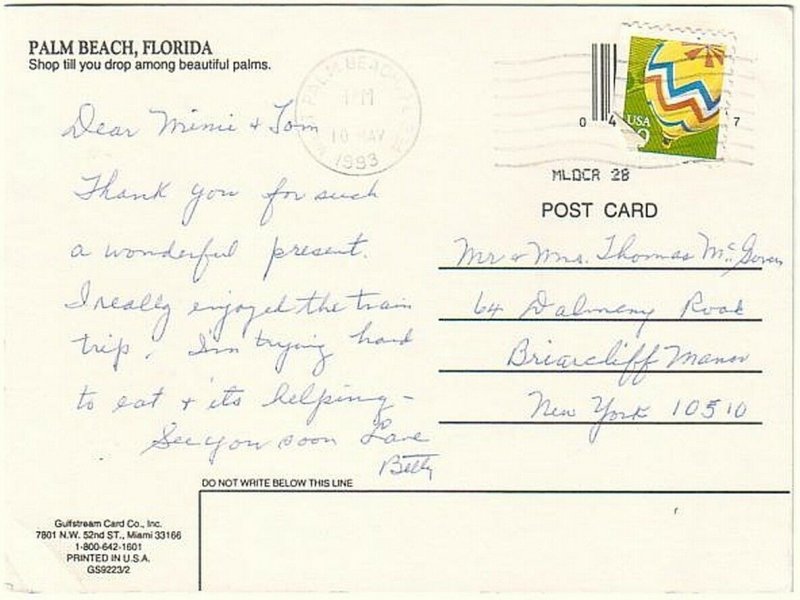 PALM BEACH, FLORIDA
Shop till you drop among beautiful palms.
PALM BEACH
PM
10 MAY
1993
USA
19
0 4 7
MLOCR 28
POST CARD
Dear Mimi & Tom
Thank you for such
a wonderful present.
I really enjoyed the train
trip. I'm trying hard
to eat & its helping -
See you soon Love
Betty
Mr & Mrs. Thomas McGovern
64 Dalmeny Road
Briarcliff Manor
New York 10510
DO NOT WRITE BELOW THIS LINE
Gulfstream Card Co., Inc.
7801 N.W. 52nd ST., Miami 33166
1-800-642-1601
PRINTED IN U.S.A.
GS9223/2